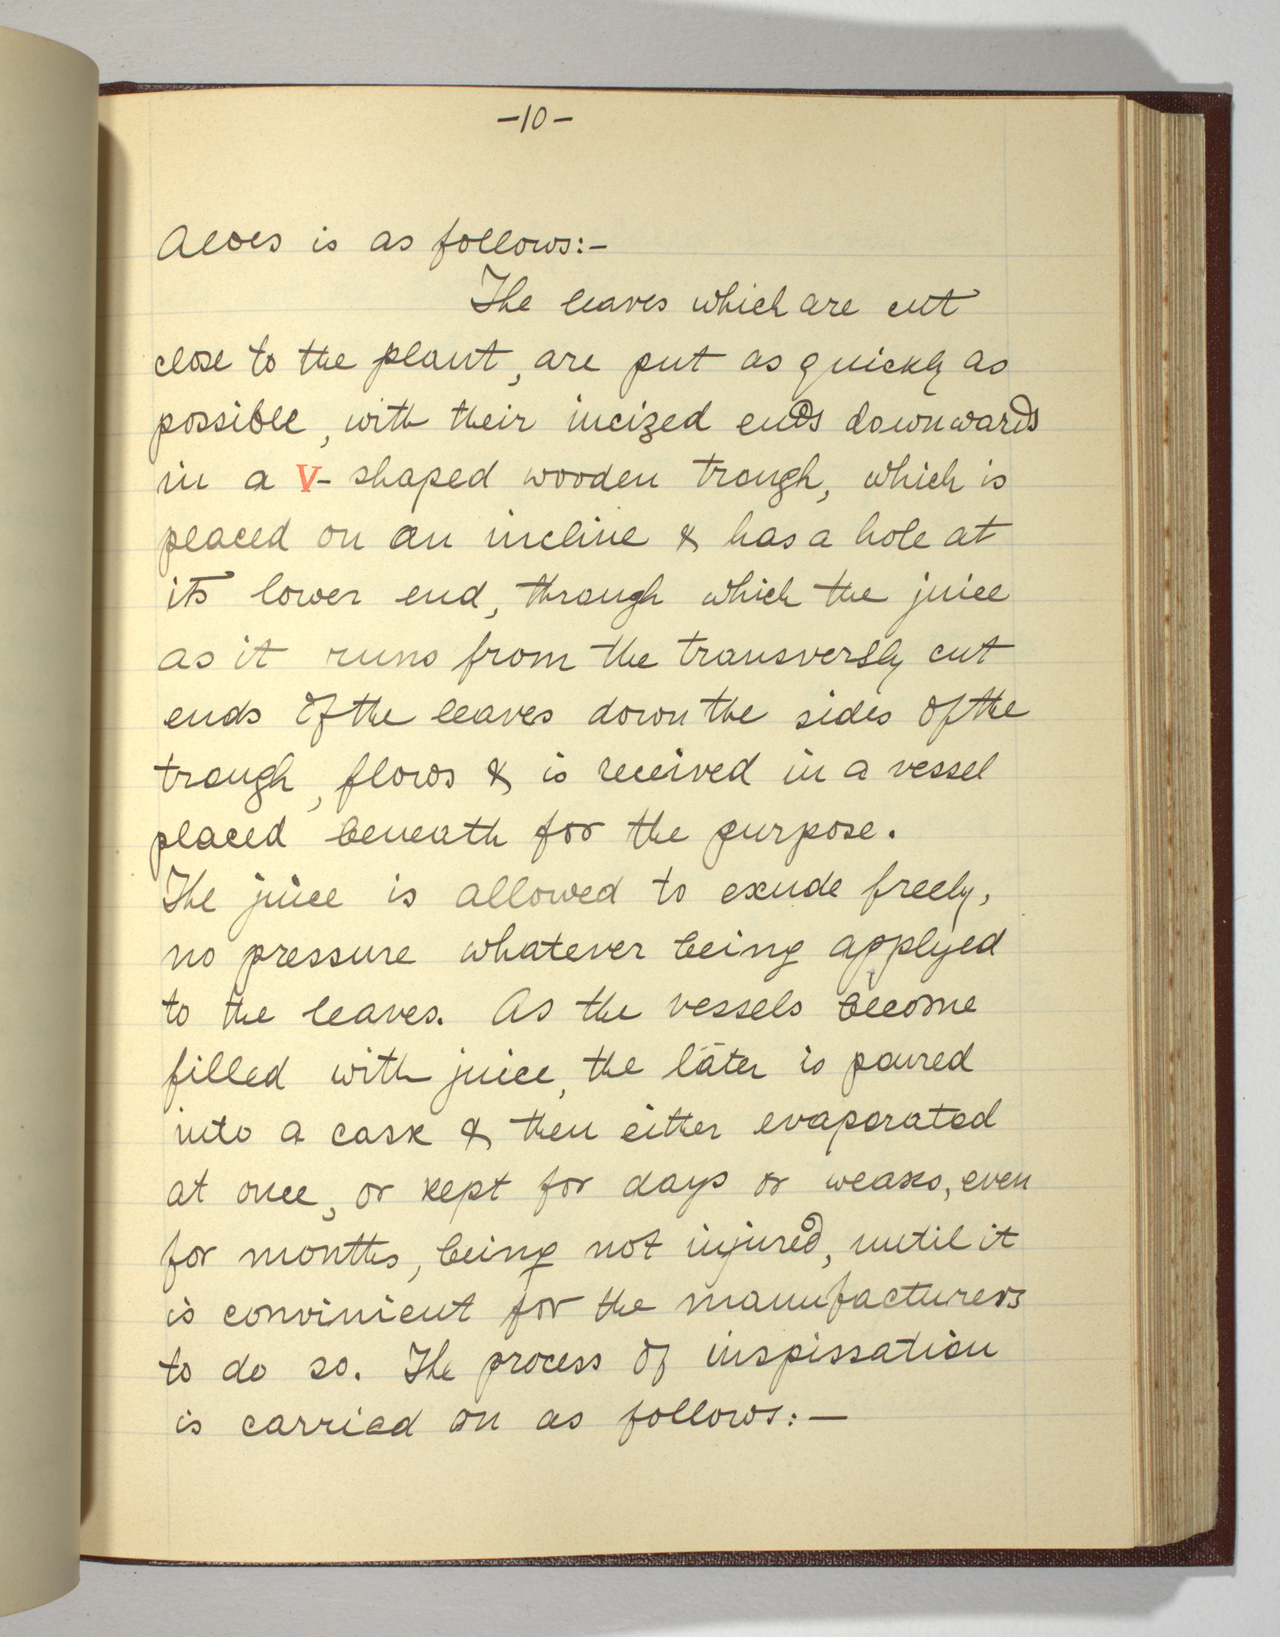 -10-
Aloes is as follows:-
The leaves which are cut
close to the plant, are put as quickly as
possible, with their incized ends downwards
in a V- shaped wooden trough, which is
placed on an incline & has a hole at
its lower end, through which the juice
as it runs from the transversly cut
ends of the leaves down the sides of the
trough, flows & is received in a vessel
placed beneath for the purpose.
The juice is allowed to exude freely,
no pressure whatever being applyed
to the leaves. As the vessels become
filled with juice, the later is poured
into a cask & then either evaporated
at once, or kept for days or weaks, even
for months, being not injured, until it
is convinient for the manufacturers
to do so. The process of inspissation
is carried on as follows:-